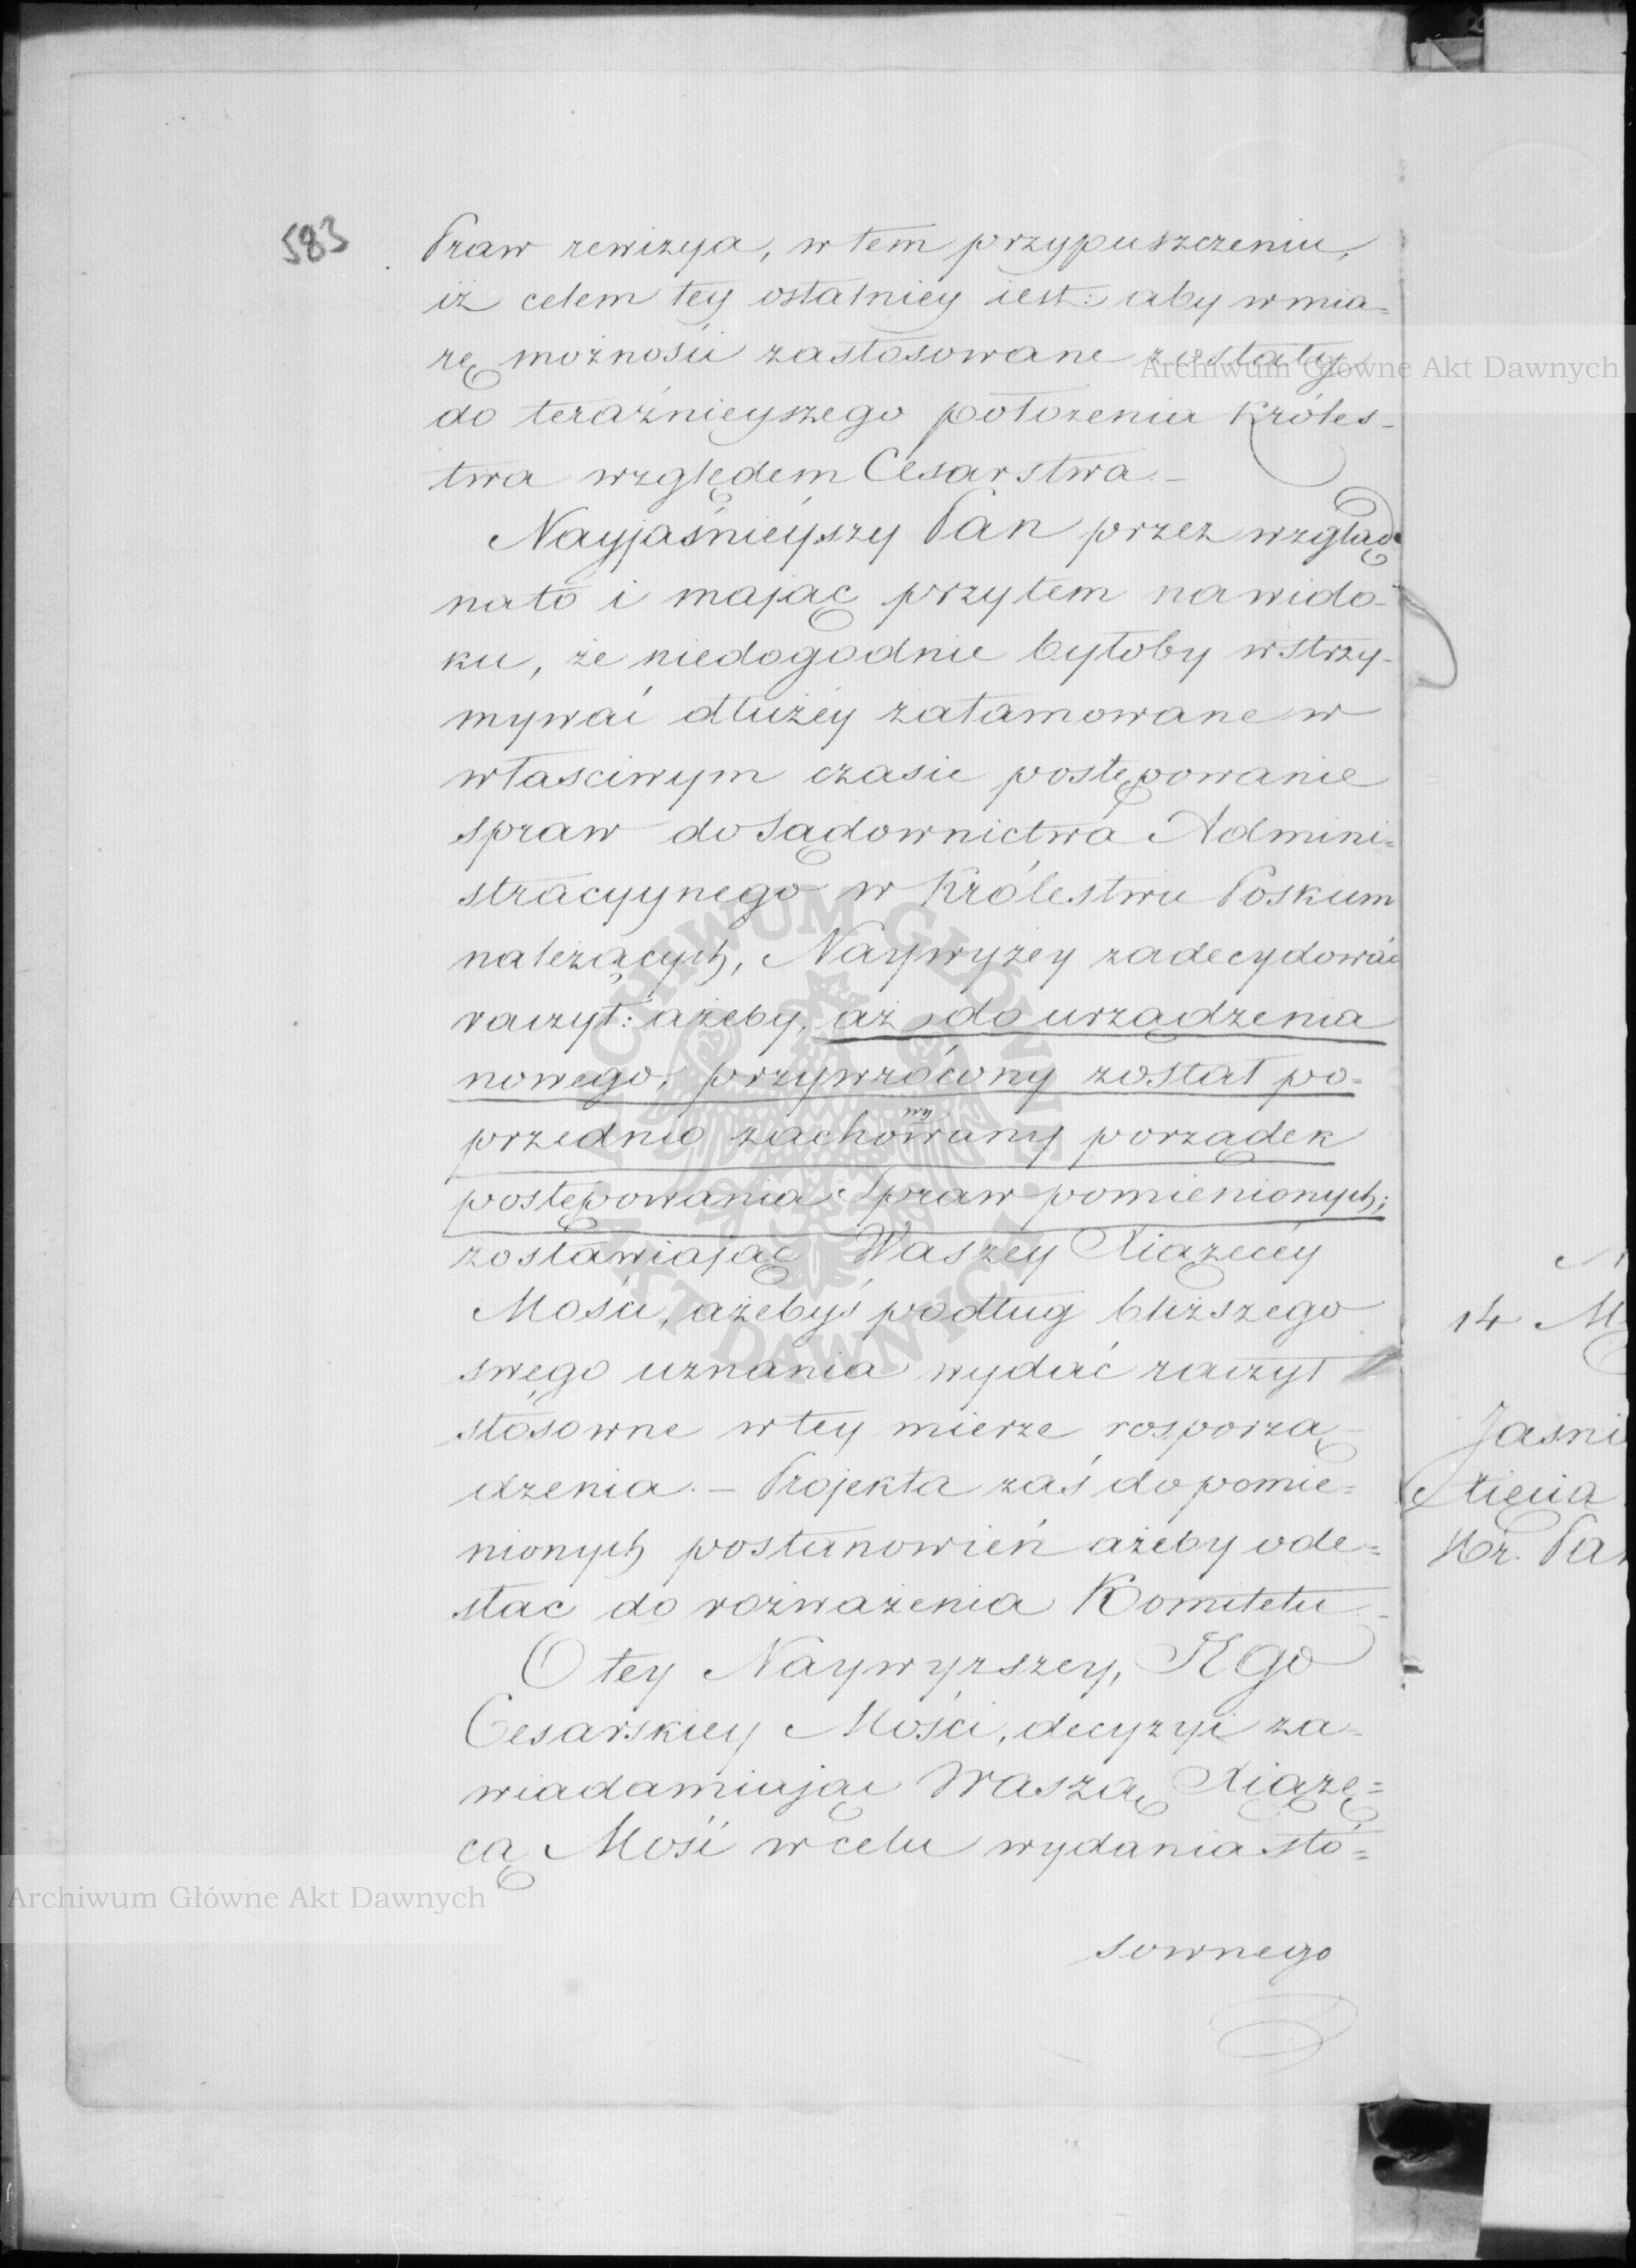 583
Praw rewizya, w tem przypuszczeniu,
iż celem tey ostatniey iest: aby w mia=
rę możności zastosowane zostały
Archiwum Główne Akt Dawnych
do teraźnieyszego położenia Króles-
twa względem Cesarstwa.-
Nayjaśnieyszy Pan przez wzgląd
nato i mając przytem nawido-
ku, że niedogodnie byłoby wstrzy-
mywać dłużéy zatamowane w
własciwym czasie postępowanie
spraw do Sądownictwa Admini=
stracyynego w Królestwie Poskiem
należących, Naywyżey zadecydować
raczył: ażeby, aż do urządzenia
nowego, przywrócony został po=
przednio zachowany porządek
postępowania Spraw pomienionych;
zostawiając Waszey Xiążęcéy
Mości, ażebyś podług bliższego
swego uznania wydać raczył
stósowne w tey mierze rosporzą-
dzenia. - Projekta zaś do pomie=
nionych postanowień ażeby ode=
słac do rozważenia Komitetu
O tey Naywyższey, JEgo
Cesarskiey Mości, decyzyi za=
wiadamiając Waszą Xiążę=
cą Mość w celu wydania stó=
sownego
Archiwum Główne Akt Dawnych
ARCHIWUM GŁÓWNE AKT DAWNYCH
14 M
Jasni
Xięcia
Hr. Pa